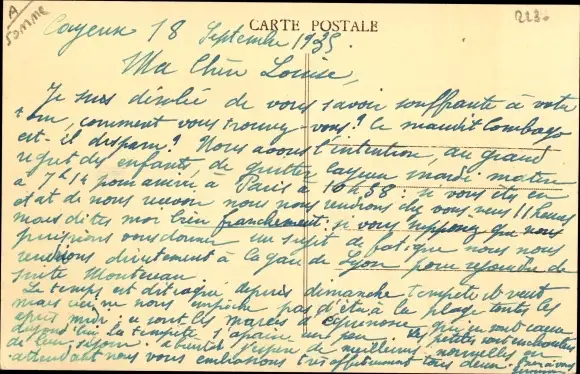 A
Somme
2236
CARTE POSTALE
Cayeux 18 Septembre 1935
Ma Chère Louise,
Je suis désolée de vous savoir souffrante à votre
tour, comment vous trouvez-vous? Ce maudit lombago
est-il disparu? Nous avons l'intention, au grand
regret des enfants, de quitter Cayeux mardi matin
à 7h14 pour arriver à Paris à 10h58: si vous êtes en
état de nous recevoir nous nous rendrions chez vous vers 11 heures
mais dites moi bien franchement; si vous supposez que nous
puissions vous donner un sujet de fatigue nous nous
rendrons directement à la gare de Lyon pour rejoindre de
suite Montereau
Le temps est détraqué depuis dimanche tempête et vent
mais rien ne nous empêche pas d'être à la plage toutes les
après midi: ce sont les marées d'équinoxe qui en sont cause
aujourd'hui la tempête s'apaise un peu. Les petites sont enchantées
de leur séjour. à bientôt j'espère de meilleures nouvelles en
attendant nous vous embrassons très affectueusement tous deux.